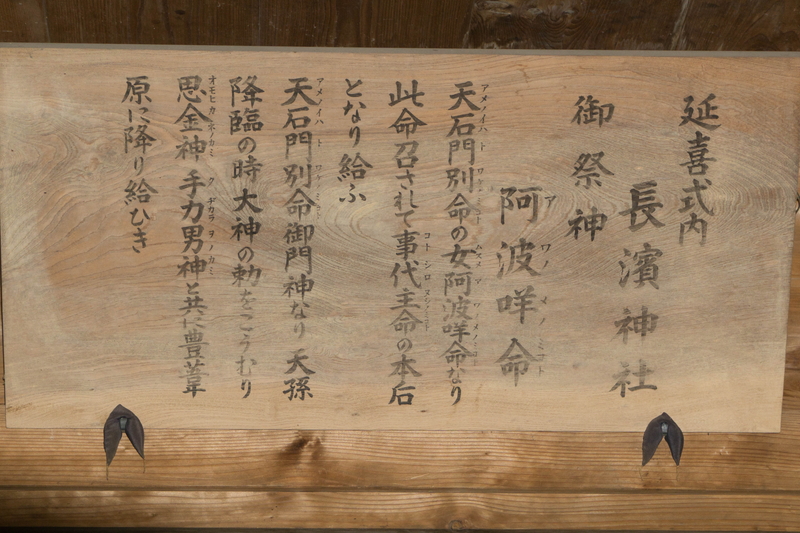 延喜式内
長濱神社
御祭神
阿波咩命
アワノメノミコト
天石門別命の女阿波咩命なり
此命召されて事代主命の本后
となり給ふ
天石門別命御門神なり 天孫
降臨の時大神の勅をこうむり
思金神 手力男神と共に豊葦
原に降り給ひき